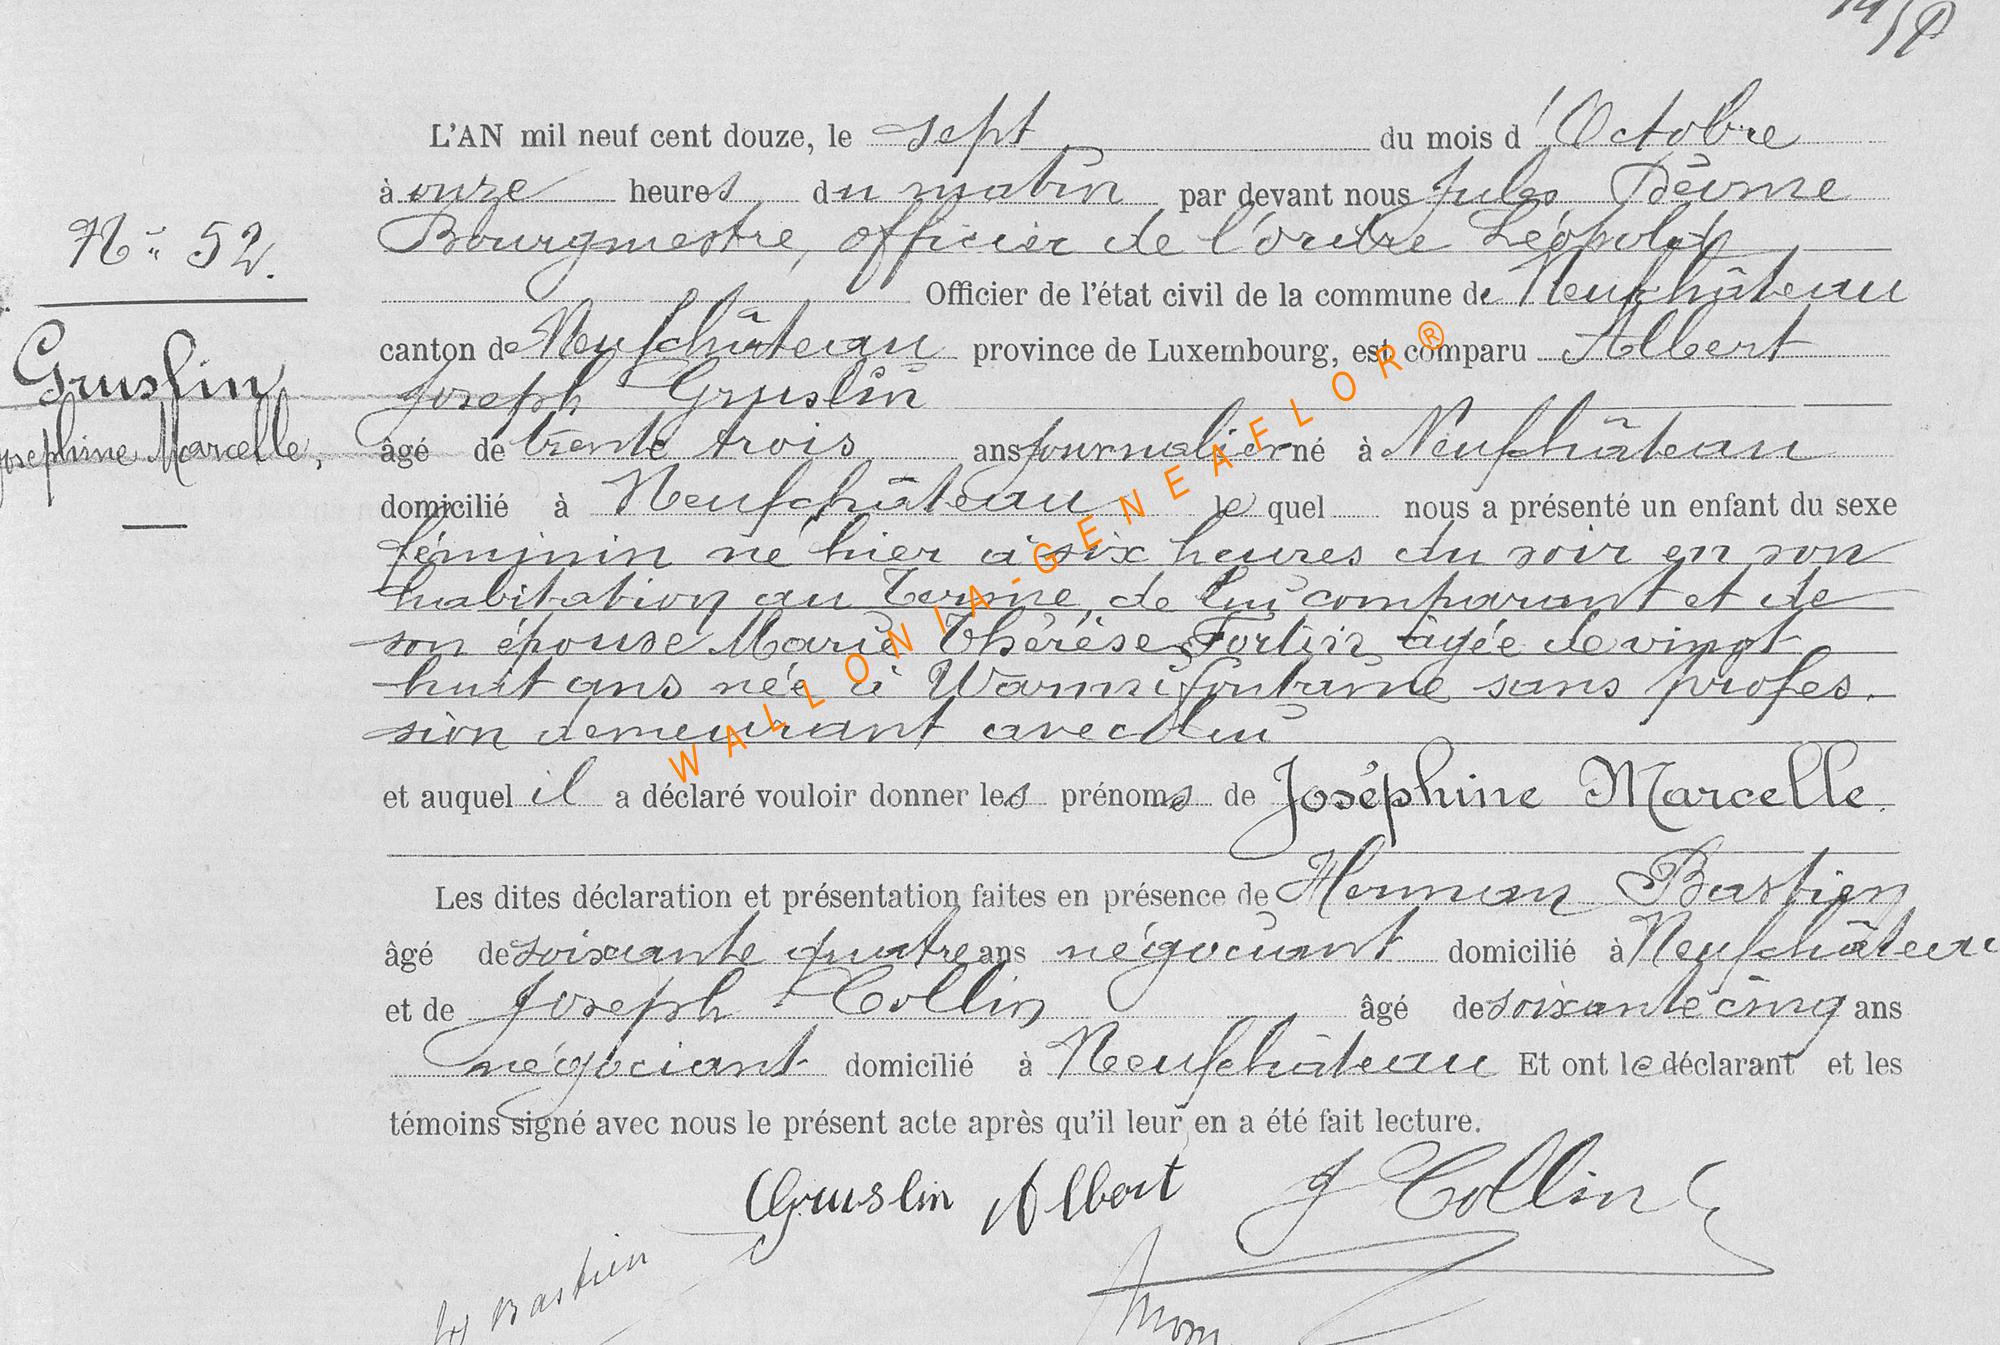 L'AN mil neuf cent douze, le sept du mois d'Octobre
à onze heures du matin par devant nous Jules
Bourgmestre, officier de l'ordre Léopold
Officier de l'état civil de la commune de Neufchâteau
canton de Neufchâteau province de Luxembourg, est comparu Albert
Joseph Gruslin
âgé de trente trois ans journalier né à Neufchâteau
domicilié à Neufchâteau le quel nous a présenté un enfant du sexe
féminin né hier à six heures du soir en son
habitation au Terme, de lui comparant et de
son épouse Marie Thérèse Fortin âgée de vingt
huit ans née à Warmifontaine sans profes.
sion demeurant avec lui
et auquel il a déclaré vouloir donner les prénoms de Joséphine Marcelle.
Les dites déclaration et présentation faites en présence de Herman Bastien
âgé de soixante quatre ans négociant domicilié à Neufchâteau
et de Joseph Collin âgé de soixante cinq ans
négociant domicilié à Neufchâteau Et ont le déclarant et les
témoins signé avec nous le présent acte après qu'il leur en a été fait lecture.
Gruslin Albert J Collin
Bastien
No 52.
Gruslin
Josephine Marcelle,
WALLONIA-GENEAFLOR®